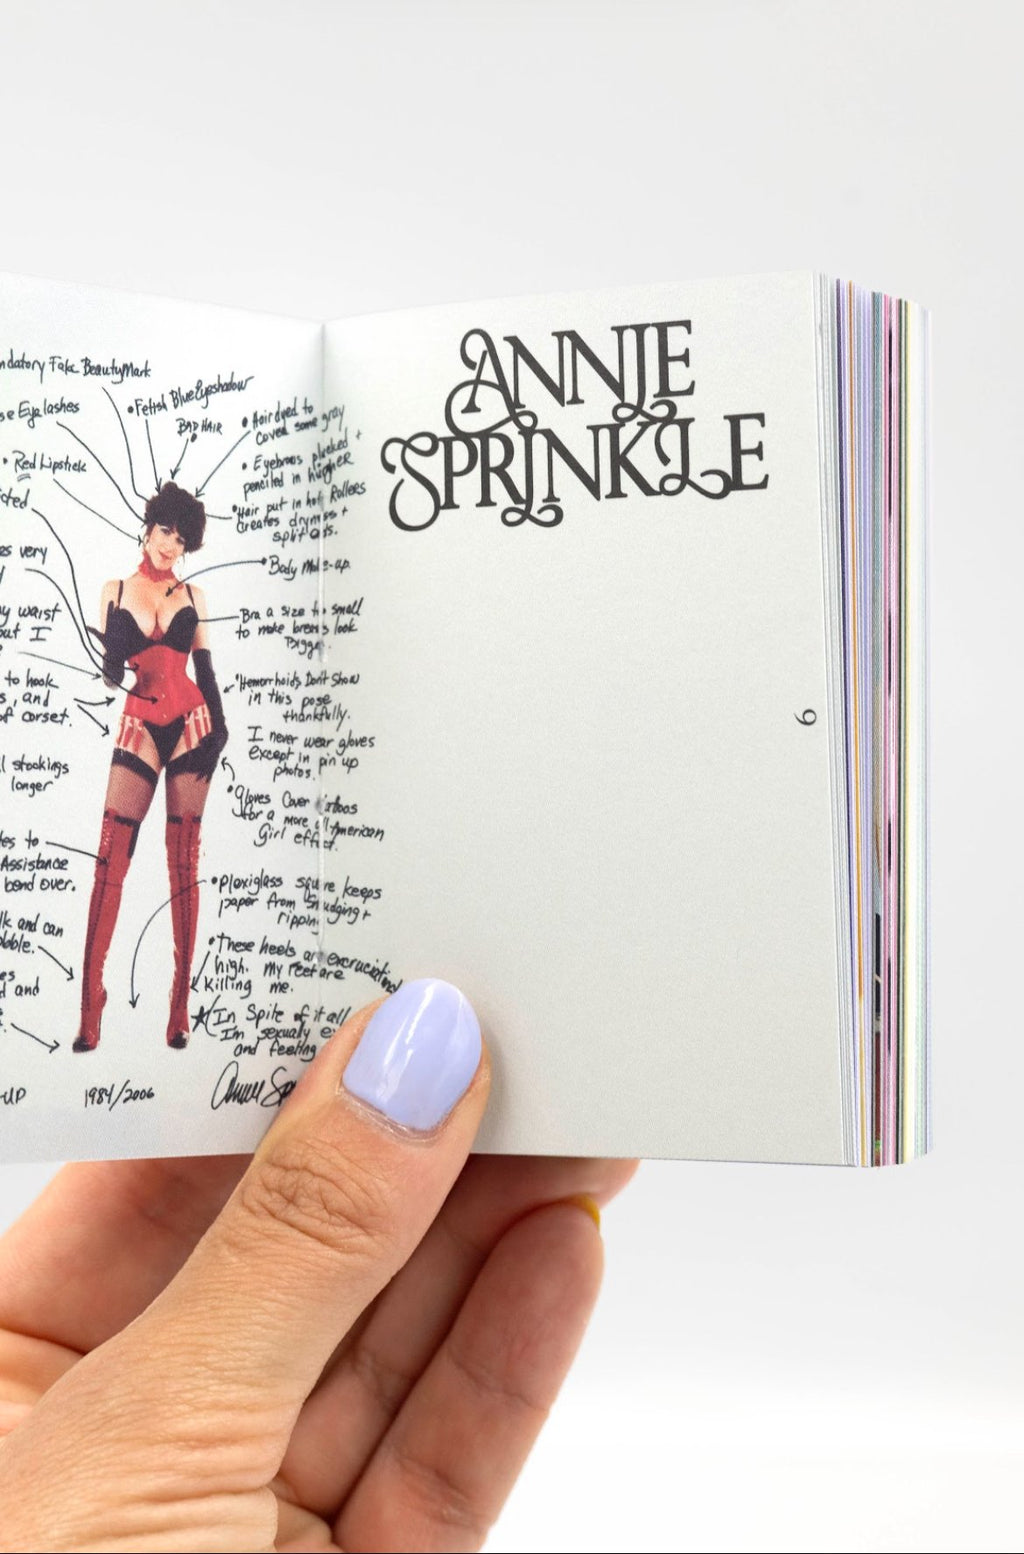 ndatory Fake BeautyMark
se Eyelashes
• Red Lipstick
cted
es very
y waist
out I
to hook
s, and
of corset.
l stockings
longer
tes to
Assistance
bend over.
lk and can
es
d and
-UP
1984/2006
• Fetish Blue Eyeshadow
BAD HAIR
• Hair dyed to
cover some gray
• Eyebrows plucked +
penciled in higher
• Hair put in hot Rollers
creates dryness +
split ends.
• Body Make-up.
Bra a size to small
to make breasts look
Bigger
• Hemorrhoids Don't Show
in this pose
thankfully.
I never wear gloves
except in pin up
photos.
• Gloves Cover tattoos
for a more all American
Girl effect.
• Plexiglass square keeps
paper from smudging +
ripping
• These heels are excruciatin
high. My feet are
killing me.
★ In Spite of it all
I'm sexually
and feeling
Annie
ANNIE
SPRINKLE
6